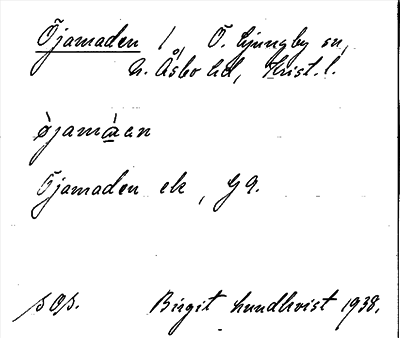 Öjamaden l, Ö. Ljungby sn,
N. Åsbo hd, Krist. l.
ö̀jamàan
Öjamaden ek, G9.
sOs. Birgit Lundkvist 1938.